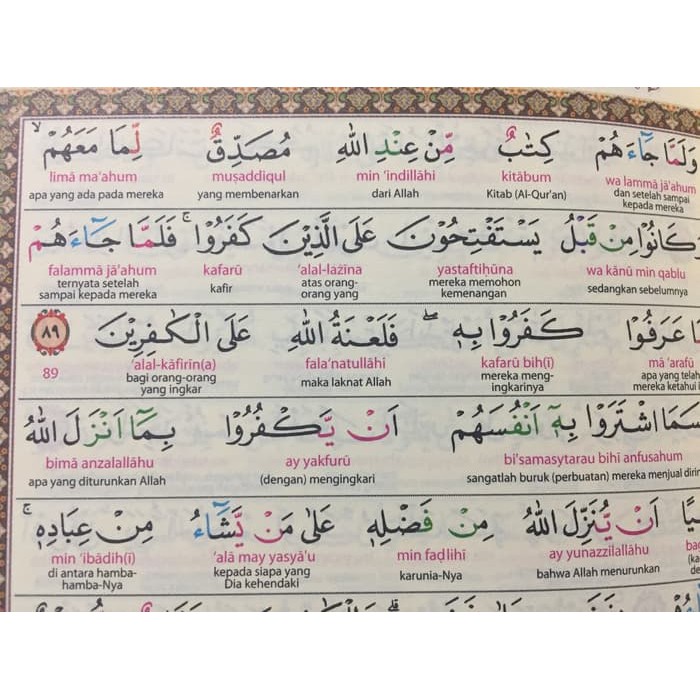 وَلَمَّا جَاۤءَهُمْ كِتٰبٌ مِّنْ عِنْدِ اللّٰهِ مُصَدِّقٌ لِّمَا مَعَهُمْۙ
wa lammā jā'ahum kitābum min 'indillāhi muṣaddiqul limā ma'ahum
dan setelah sampai kepada mereka Kitab (Al-Qur'an) dari Allah yang membenarkan apa yang ada pada mereka
وَكَانُوْا مِنْ قَبْلُ يَسْتَفْتِحُوْنَ عَلَى الَّذِيْنَ كَفَرُوْاۚ فَلَمَّا جَاۤءَهُمْ
wa kānū min qablu yastaftiḥūna 'alal-lażīna kafarū falammā jā'ahum
sedangkan sebelumnya mereka memohon kemenangan atas orang-orang yang kafir ternyata setelah sampai kepada mereka
مَّا عَرَفُوْا كَفَرُوْا بِهٖ ۖ فَلَعْنَةُ اللّٰهِ عَلَى الْكٰفِرِيْنَ ٨٩
mā 'arafū kafarū bih(ī) fala'natullāhi 'alal-kāfirīn(a) 89
apa yang telah mereka ketahui mereka mengingkarinya maka laknat Allah bagi orang-orang yang ingkar
سَمَا اشْتَرَوْا بِهٖٓ اَنْفُسَهُمْ اَنْ يَّكْفُرُوْا بِمَآ اَنْزَلَ اللّٰهُ
bi'samasytarau bihī anfusahum ay yakfurū bimā anzalallāhu
sangatlah buruk (perbuatan) mereka menjual diri (dengan) mengingkari apa yang diturunkan Allah
اَنْ يُّنَزِّلَ اللّٰهُ مِنْ فَضْلِهٖ عَلٰى مَنْ يَّشَاۤءُ مِنْ عِبَادِهٖۚ
ay yunazzilallāhu min faḍlihī 'alā may yasyā'u min 'ibādih(ī)
bahwa Allah menurunkan karunia-Nya kepada siapa yang Dia kehendaki di antara hamba-hamba-Nya